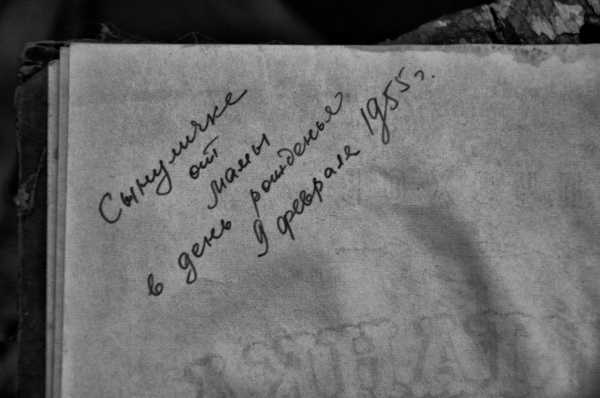 Сынуличке
от
мамы
в день рожденья
9 февраля 1955 г.